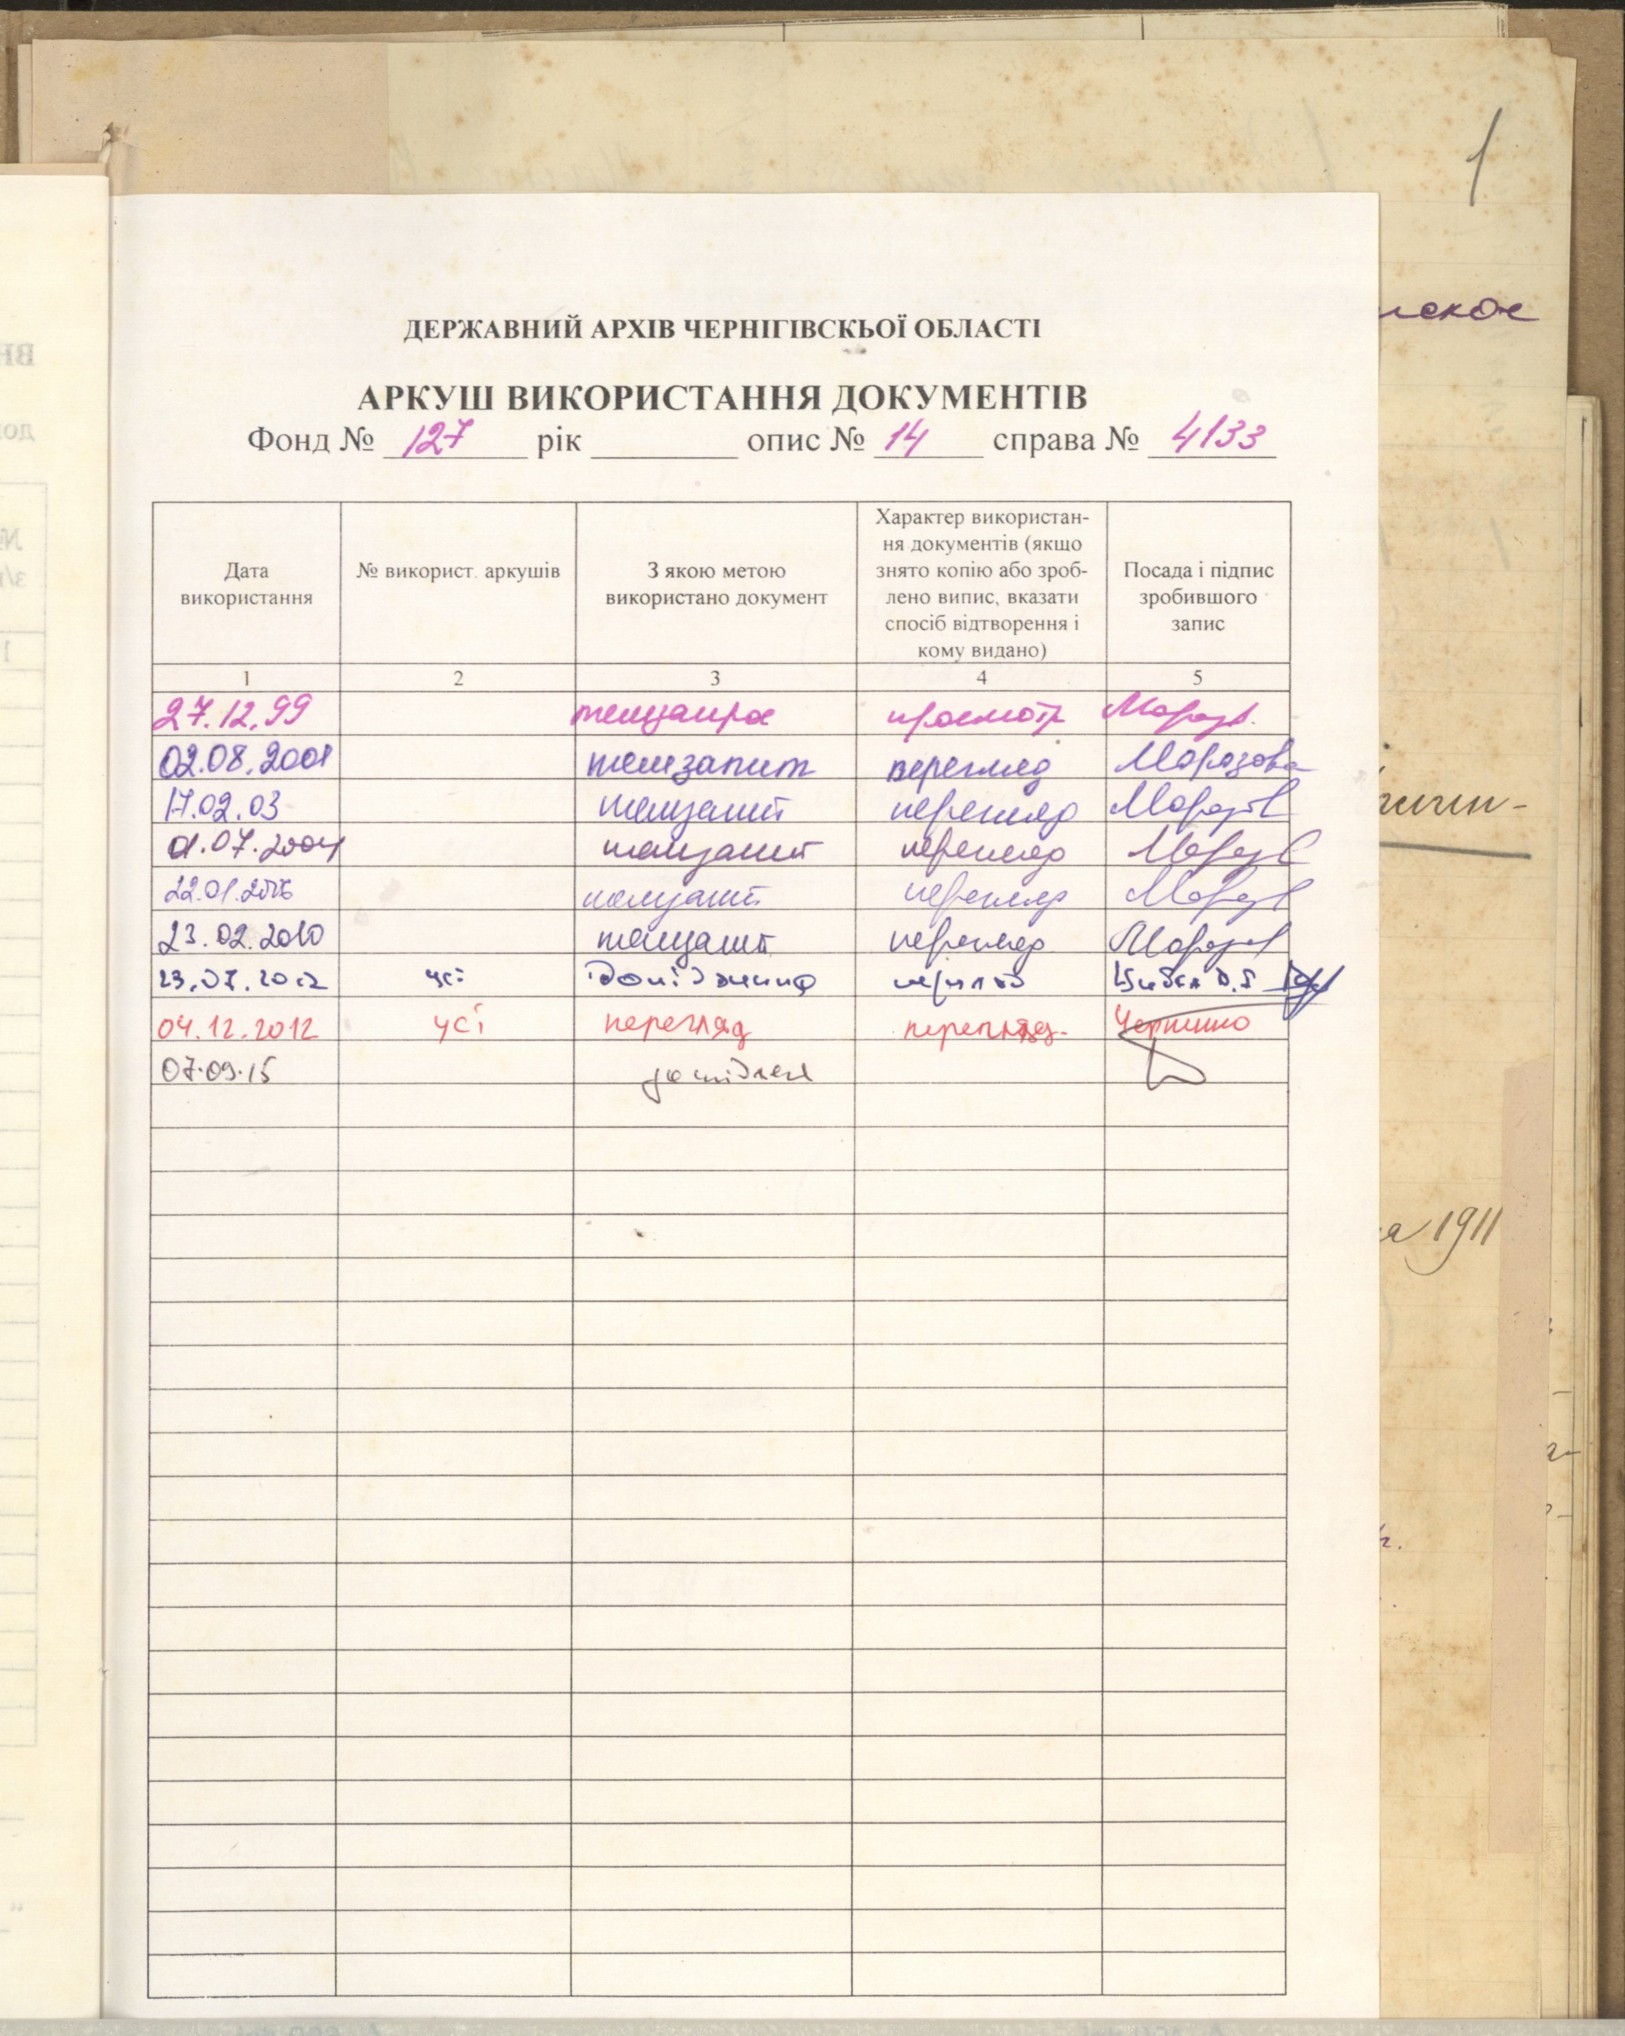 1
ДЕРЖАВНИЙ АРХІВ ЧЕРНІГІВСЬКОЇ ОБЛАСТІ
АРКУШ ВИКОРИСТАННЯ ДОКУМЕНТІВ
Фонд № 127 рік опис № 14 справа № 4133
Дата використання
№ використ. аркушів
З якою метою використано документ
Характер використан-
ня документів (якщо
знято копію або зроб-
лено випис, вказати
спосіб відтворення і
кому видано)
Посада і підпис
зробившого
запис
1 2 3 4 5
27.12.99 просмотр Мороз
02.08.2001 темзапит перегляд Морозова
17.02.03 темзапит перегляд Мороз
01.07.2004 темзапит перегляд Мороз
22.01.2006 темзапит перегляд Мороз
23.02.2010 темзапит перегляд Мороз
23.07.2012 усі перегляд
04.12.2012 усі перегляд перегляд
07.09.15
а 1911